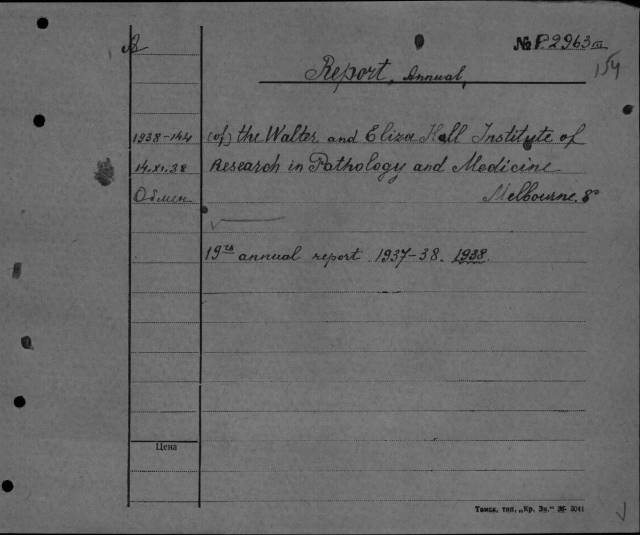 A
№ P.2963 III
154
Report, Annual,
1938-144 (of) the Walter and Eliza Hall Institute of
14.XI.38 Research in Pathology and Medicine
Обмен Melbourne. 8°
19th annual report 1937-38. 1938.
Цена
Томск, тип. „Кр. Зн." 3041